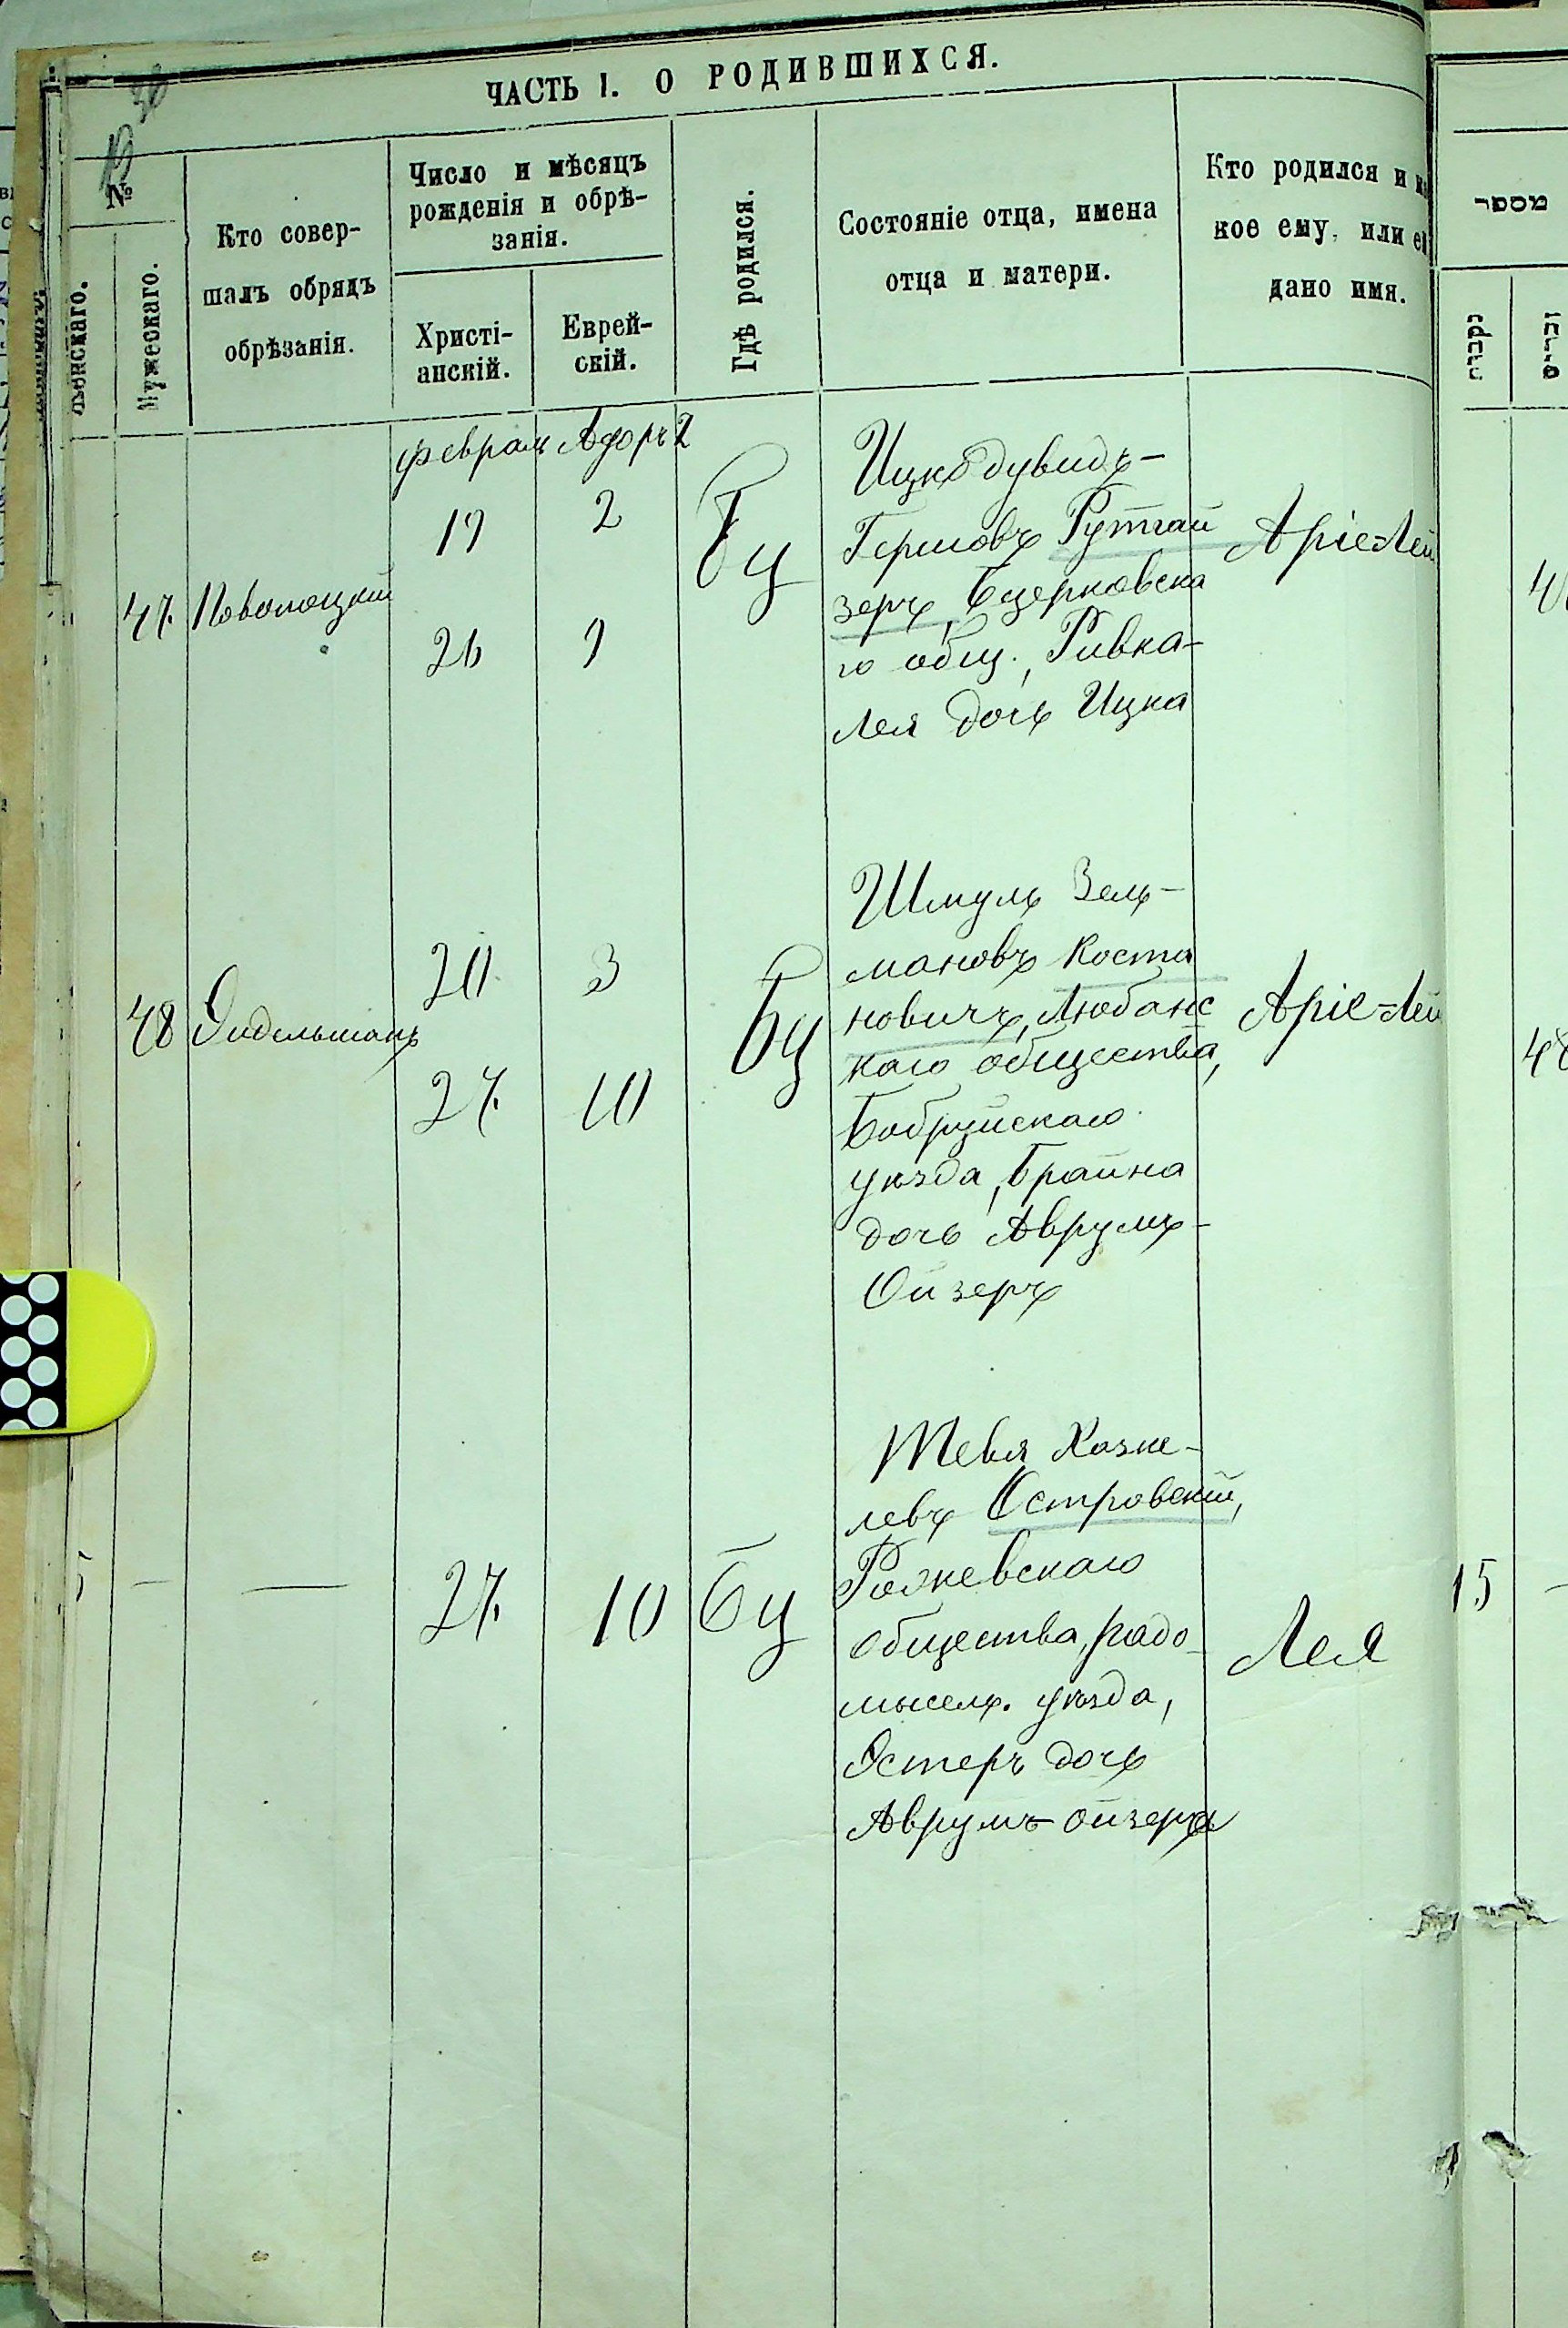 ЧАСТЬ I. О РОДИВШИХСЯ.
№
Мужескаго.
Кто совер-
шалъ обрядъ
обрѣзанія.
Число и мѣсяцъ
рожденія и обрѣ-
занія.
Христі-
анскій.
Еврей-
скій.
Гдѣ родился.
Состояніе отца, имена
отца и матери.
Кто родился и
кое ему, или
дано имя.
מספר
נקבות
זכרים
февраль Адоръ 2
47. Поволоцкій
19 2
26 9
Бц
Ицко Дувидъ-
Гершовъ Рутгай
зеръ, Бцерковска
го общ., Ривка-
Лея дочь Ицка
Аріе-Лей
48 Эйдельманъ
20 3
27. 10
Бц
Шмуль Зель-
мановъ Костя
новичъ, Любанс
каго общества,
Бобруйскаго
уѣзда, Брайна
дочь Аврумъ-
Ойзеръ
Аріе-Лей
48
— —
27. 10
Бц
Тевя Хазке-
левъ Островскій,
Рожевскаго
общества, радо-
мысел. уѣзда,
Эстеръ дочь
Аврумъ-Ойзера
Лея
15 —